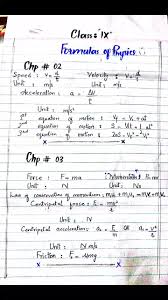 Class: "IX"
Formulas of Physics.
Chp # 02
Speed : v = d/t Velocity : v = d/t
Unit : m/s Unit : m/s
Acceleration : a = Δv/t
Unit : m/s²
1st equation of motion : Vf = Vi + at
2nd equation of motion : S = Vit + ½ at²
3rd equation of motion : 2aS = Vf² - Vi²
Chp # 03
Force : F = ma Momentum : P = mv
Unit : N Unit : Ns
Law of conservation of momentum : m₁u₁ + m₂u₂ = m₁v₁ + m₂v₂
Centripetal force : Fc = mv²/r
Unit : N
Centripetal acceleration : ac = Fc/m OR ac = v²/r
Unit :
Friction :